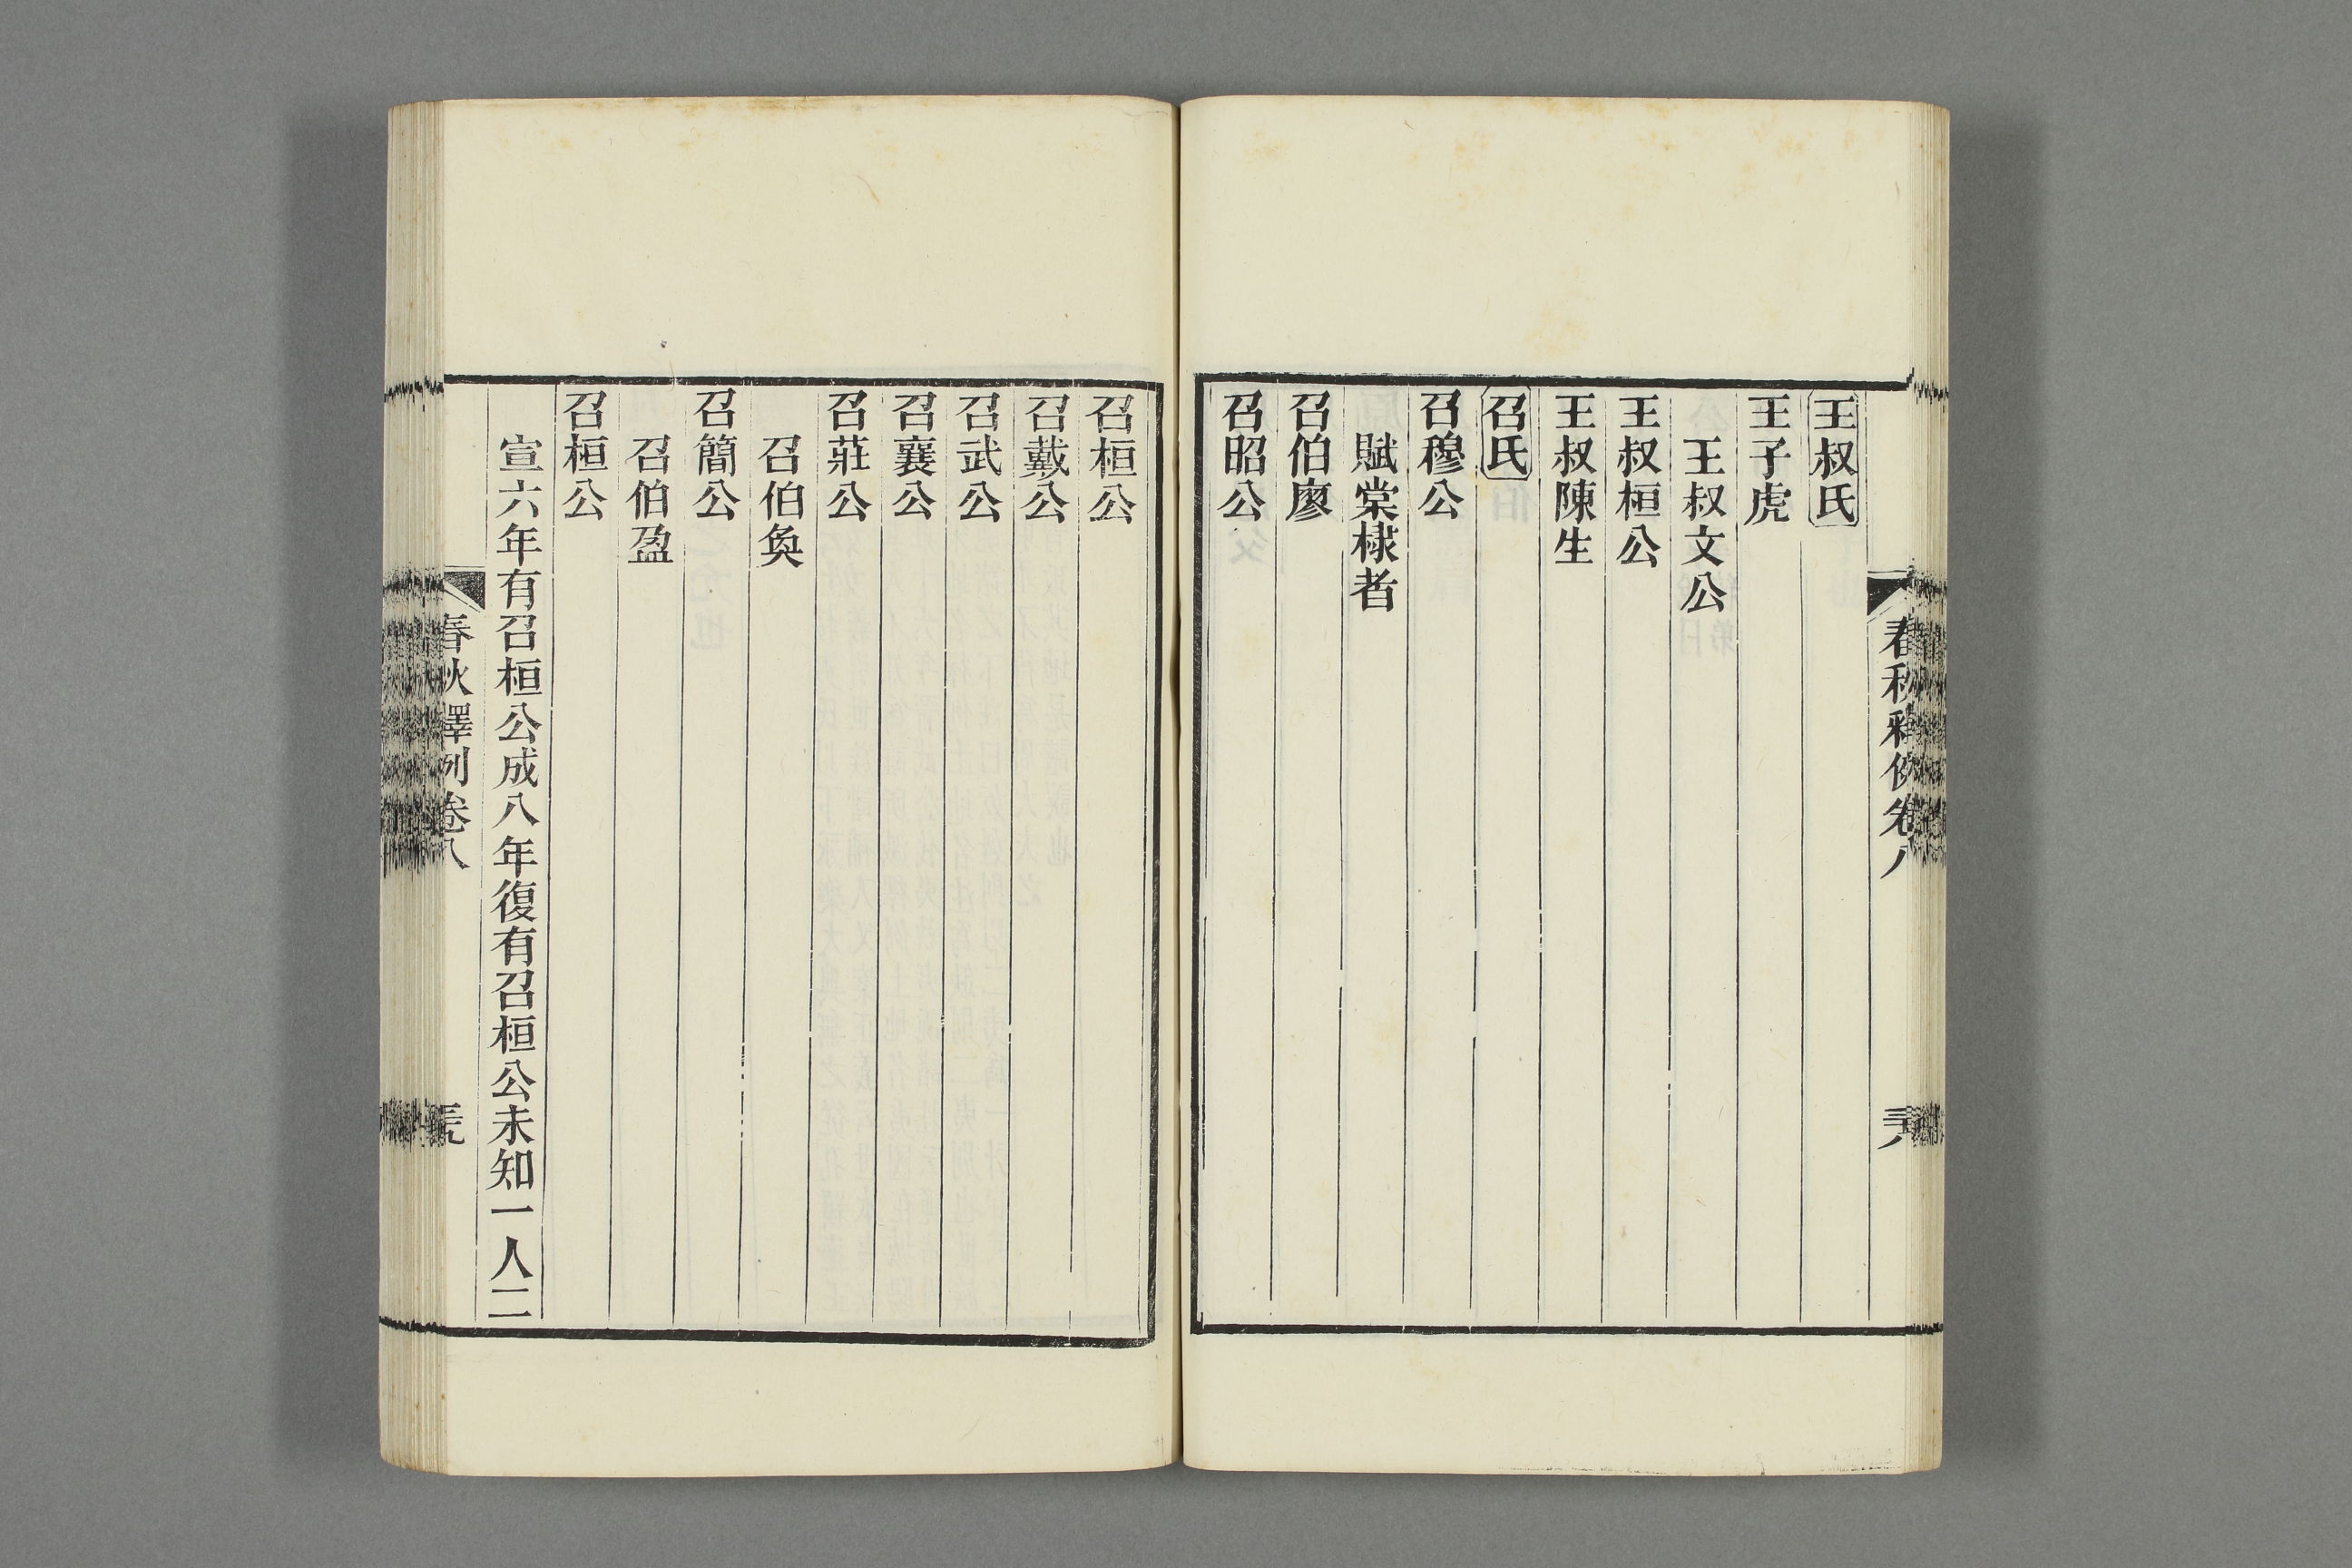 春秋釋例卷八
王叔氏
王子虎
王叔文公
王叔桓公
王叔陳生
召氏
召穆公
賦棠棣者
召伯廖
召昭公
召桓公
召戴公
召武公
召襄公
召莊公
召伯奐
召簡公
召伯盈
召桓公
宣六年有召桓公成八年復有召桓公未知一人二
春秋釋例卷八